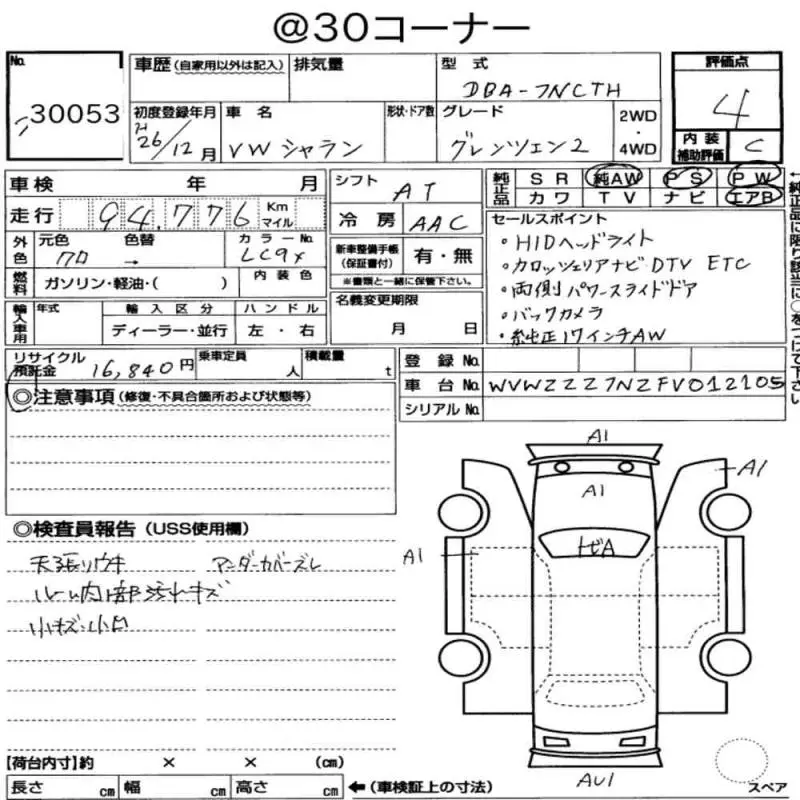 @30コーナー
No.
30053
車歴（自家用以外は記入） 排気量 型式
DBA-7NCTH
初度登録年月 車名 形状・ドア数 グレード 2WD・4WD
26/12月 VW シャラン グレンツェン2
評価点
4
内装補助評価 C
車検 年 月
走行 94,776 Km マイル
外色 元色 色替 カラーNo.
クロ → LC9X
燃料 ガソリン・軽油・（ ） 内装色
輸入車用 年式 輸入区分 ハンドル
ディーラー・並行 左・右
シフト AT
冷房 AAC
新車整備手帳（保証書付） 有・無
※書類と一緒に保管下さい。
名義変更期限
月 日
純正品 SR 純AW PS PW
カワ TV ナビ エアB
セールスポイント
・HIDヘッドライト
・カロッツェリアナビ DTV ETC
・両側パワースライドドア
・バックカメラ
・純正17インチAW
↑純正品に限り該当に○をつけて下さい
リサイクル預託金 16,840円 乗車定員 人 積載量 t
登録No.
車台No. WVWZZZ7NZFV012105
シリアルNo.
◎注意事項（修復・不具合箇所および状態等）
◎検査員報告（USS使用欄）
天張リウキ アンダーカバーズレ
ルーム内部汚レキズ
小キズ・小凹
A1
A1
A1
トビA
A1
AU1
スペア
【荷台内寸】約 × × （cm）
長さ cm 幅 cm 高さ cm ←（車検証上の寸法）